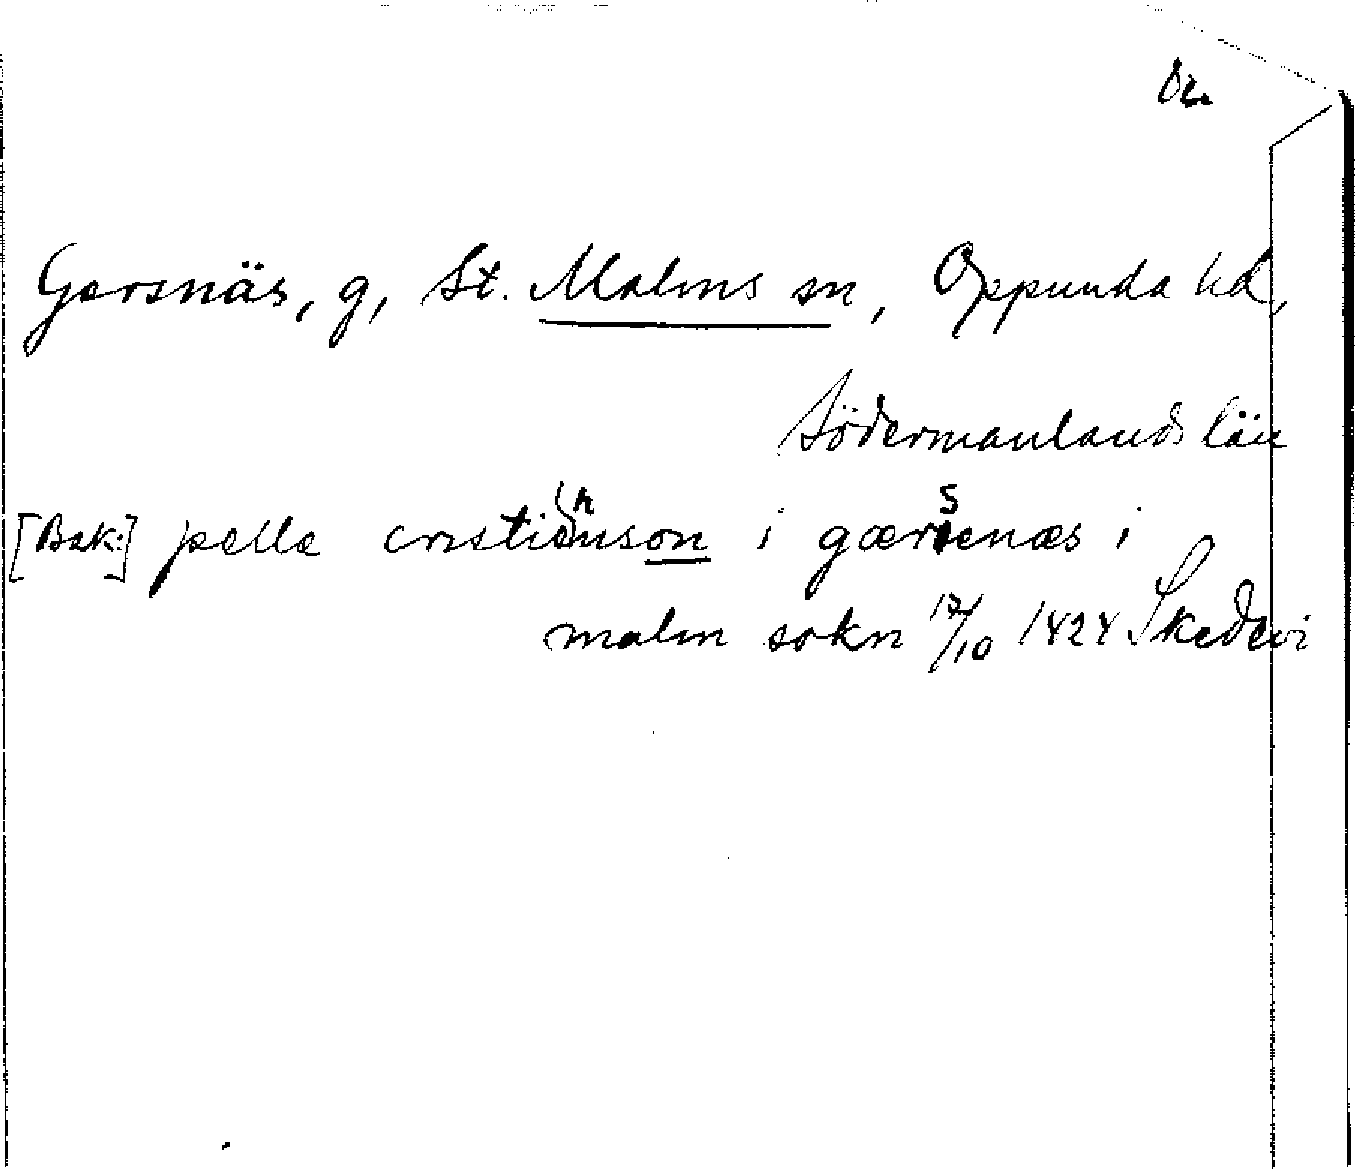 Ör.
Garsnäs, g, St. Malms sn, Oppunda hd,
Södermanlands län
[Bak:] pelle cristiensson i gærsenæs i
malm sokn 17/10 1424 Skedevi